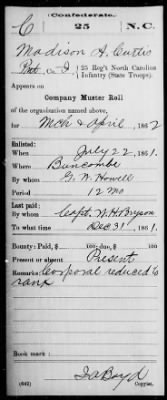 (Confederate.)
C 25 N.C.
Madison A. Curtis
Pvt, Co. I, 25 Reg't North Carolina
Infantry (State Troops).
Appears on
Company Muster Roll
of the organization named above,
for Mch & April, 1862
Enlisted:
When July 22, 1861.
Where Buncombe
By whom G. W. Howell
Period 12 Mo
Last paid:
By whom Capt. W. H. Bryson
To what time Dec 31, 1861.
Bounty: Paid, $ 100; due $ 100
Present or absent Present
Remarks: Corporal reduced to
rank
Book mark:
(642) Copyist.